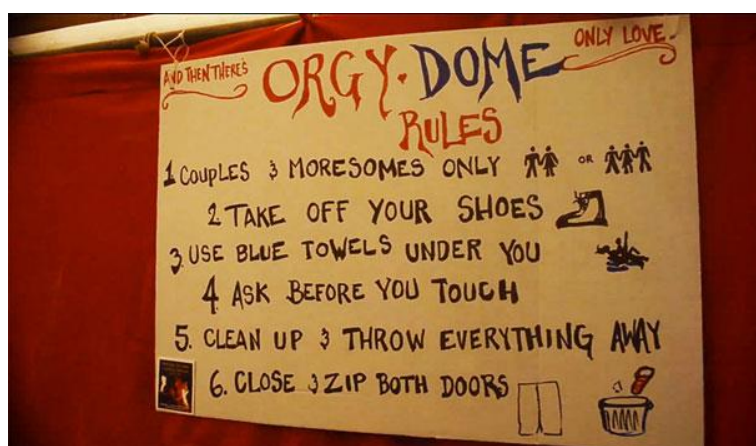 AND THEN THERE'S
ORGY·DOME
ONLY LOVE.
RULES
1 COUPLES & MORESOMES ONLY OR
2. TAKE OFF YOUR SHOES
3. USE BLUE TOWELS UNDER YOU
4. ASK BEFORE YOU TOUCH
5. CLEAN UP & THROW EVERYTHING AWAY
6. CLOSE & ZIP BOTH DOORS